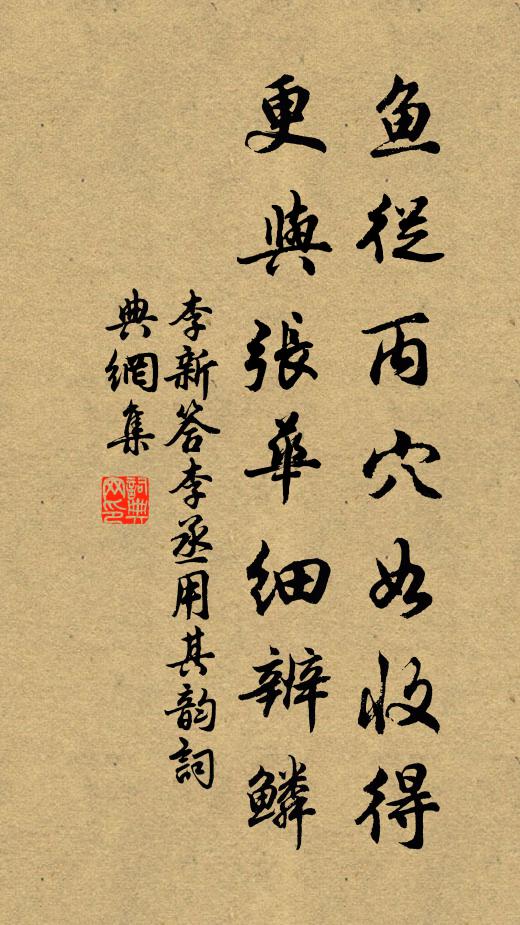 鱼從丙穴如收得
更與張華細辨鱗
李新答李丞用其韵詞
典網集
詞典網印